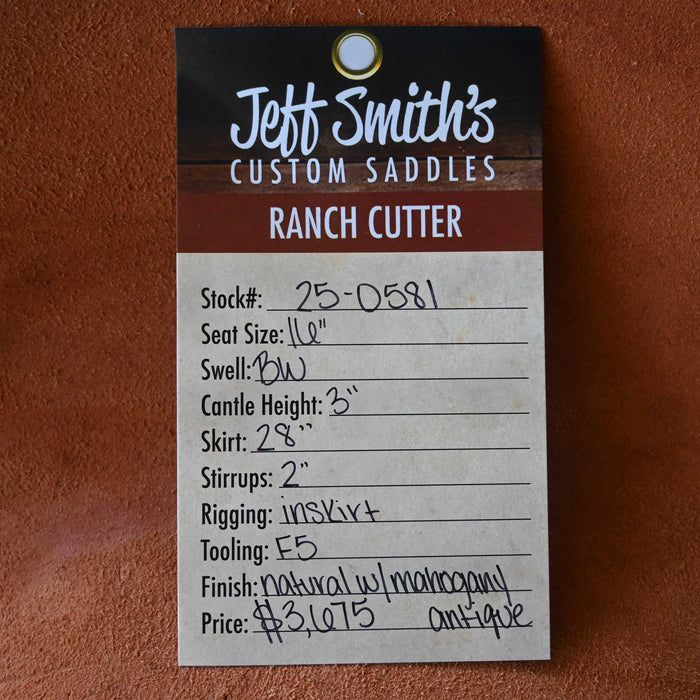 Jeff Smith's
CUSTOM SADDLES
RANCH CUTTER
Stock#: 25-0581
Seat Size: 16"
Swell: BW
Cantle Height: 3"
Skirt: 28"
Stirrups: 2"
Rigging: inskirt
Tooling: F5
Finish: natural w/mahogany
Price: $3,675 antique